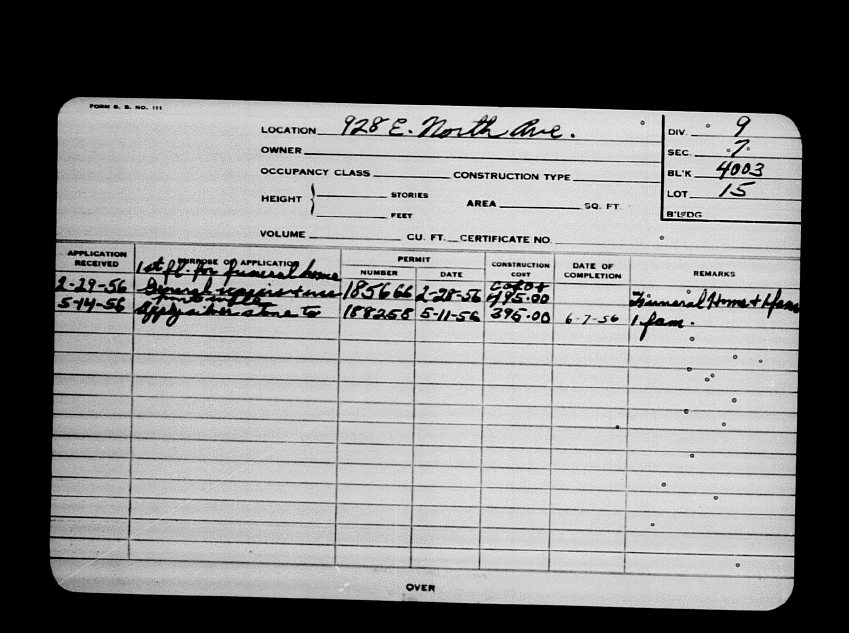 FORM B. B. NO. 111
LOCATION 928 E. North Ave.
DIV. 9
OWNER
SEC. 7
OCCUPANCY CLASS CONSTRUCTION TYPE
BL'K 4003
HEIGHT STORIES
AREA SQ. FT.
LOT 15
FEET
B'LDG
VOLUME CU. FT. CERTIFICATE NO.
APPLICATION RECEIVED PURPOSE OF APPLICATION PERMIT NUMBER DATE CONSTRUCTION COST DATE OF COMPLETION REMARKS
1st fl. for funeral home
2-29-56 General repairs + use 185666 2-28-56 495.00 Funeral Home + 1 fam
5-14-56 Apply silver stone to 188258 5-11-56 395.00 6-7-56 1 fam.
OVER